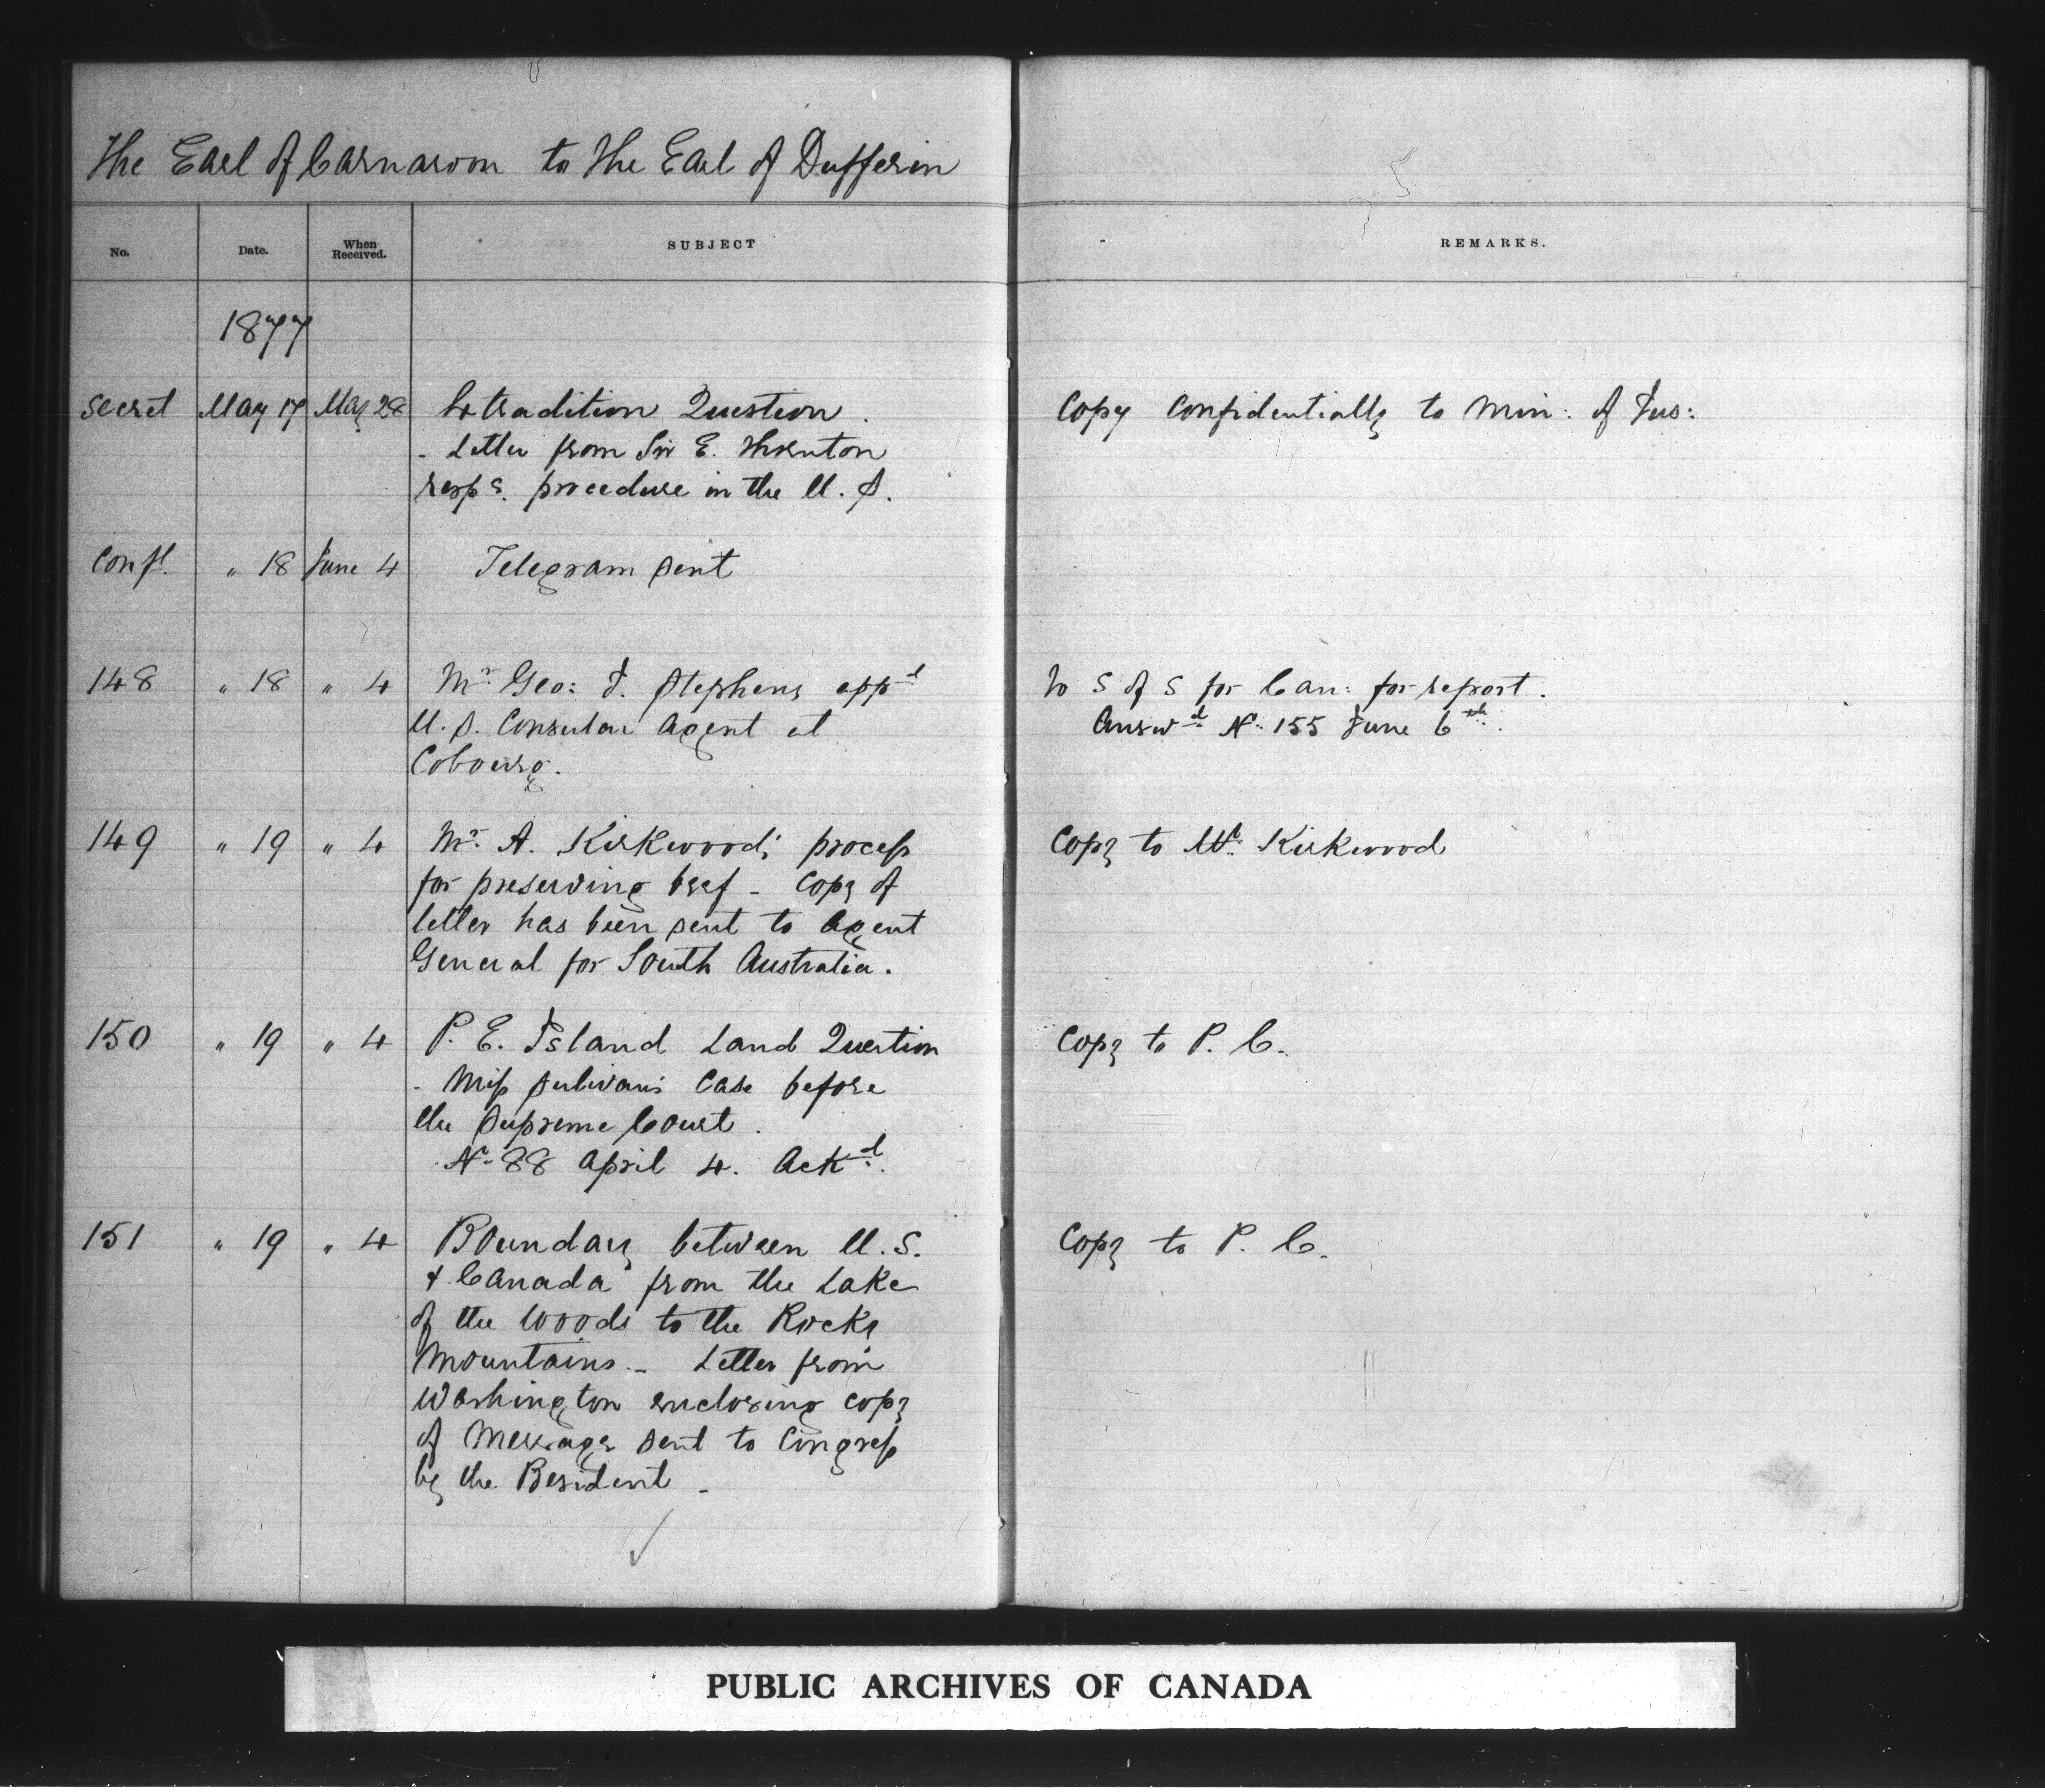 The Earl of Carnarvon to The Earl of Dufferin
No. Date. When Received. SUBJECT REMARKS.
1877
Secret May 17 May 28 Extradition Question. Copy confidentially to Min: of Jus:
- Letter from Sir E. Thornton
resps. procedure in the U. S.
Conf'l. " 18 June 4 Telegram sent
148 " 18 " 4 Mr. Geo: J. Stephens appd To S of S for Can: for report.
U. S. Consular Agent at Answd No. 155 June 6th.
Cobourg.
149 " 19 " 4 Mr. A. Kirkwood's process Copy to Mr. Kirkwood
for preserving beef - Copy of
letter has been sent to Agent
General for South Australia.
150 " 19 " 4 P. E. Island Land Question Copy to P. C.
- Miss Sulivan's Case before
the Supreme Court.
No 88 April 4. Ackd.
151 " 19 " 4 Boundary between U. S. Copy to P. C.
& Canada from the Lake
of the Woods to the Rocky
Mountains. - Letter from
Washington enclosing copy
of Message sent to Congress
by the President -
PUBLIC ARCHIVES OF CANADA